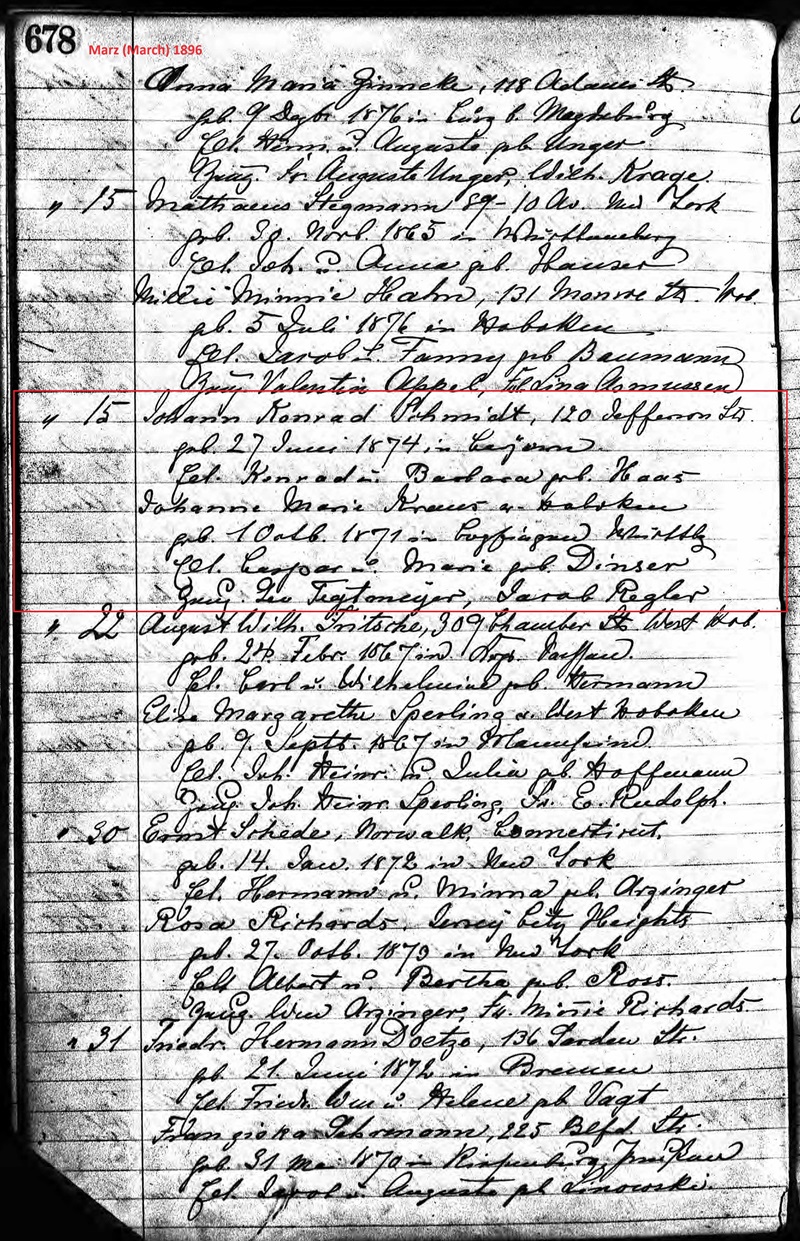 678 Marz (March) 1896
Anna Maria Zinneke, 118 Adams St.
geb. 9 Dezbr 1876 in Burg b. Magdeburg
Elt. Herm. u. Auguste geb Unger
Zeug. Fr. Auguste Unger, Wilh. Krage.
" 15 Mathaeus Stegmann 89-10 Av. New York
geb. 30. Novb. 1865 in Württemberg
Elt. Joh. u. Anna geb. Hauser
Minnie Hahn, 131 Monroe St. Hob.
geb. 5 Juli 1876 in Hoboken
Elt. Jacob u. Fanny geb Baumann
Zeug Valentin Appel, Frl Lina Asmussen
" 15 Johann Konrad Schmidt, 120 Jefferson Str.
geb. 27 Juni 1874 in Bayern
Elt. Konrad u. Barbara geb. Haas
Johanne Marie Kraus v. Hoboken
geb. 1 Octb. 1871 in Württbg
Elt. Caspar u. Marie geb. Dinser
Zeug. Leo Tegtmeyer, Jacob Regler
" 22 August Wilh. Fritsche, 309 Chamber St. West Hob.
geb. 24. Febr. 1867 in
Elt. Carl u. Wilhelmine geb. Hermann
Elise Margarethe Sperling v. West Hoboken
geb. 9. Septb. 1867 in Mannheim
Elt. Joh. Heinr. u. Julia geb. Hoffmann
Zeug Joh. Heinr. Sperling, Fr. E. Rudolph.
" 30 Ernst Schede, Norwalk, Connecticut.
geb. 14. Jan. 1872 in New York
Elt. Hermann u. Minna geb. Arzinger
Rosa Richards, Jersey City Heights
geb. 27. Octb. 1873 in New York
Elt Albert u. Bertha geb. Ross.
Zeug. Wm Arzinger, Fr. Minie Richards
" 31 Friedr. Hermann Doetze, 136 Garden Str.
geb. 21. Juni 1872 in Bremen
Elt. Friedr. Wm u. Helene geb Vagt
Franziska Gehrmann, 225 Blfd Str.
geb. 31 Mai 1870 in Riesenburg Preußen
Elt. Jacob u. Auguste geb Linowski.